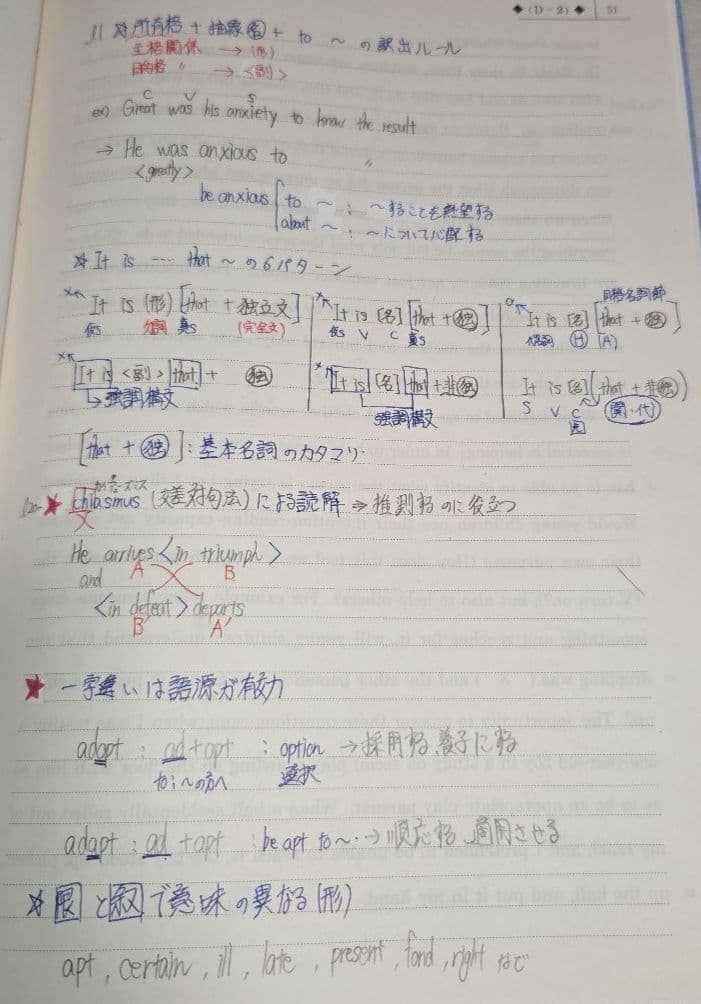 ◆(D-2)◆ 51
11 ☆所有格 + 抽象名 + to ～ の訳出ルール
主格関係 → (形)
目的格 〃 → <副>
C V S
ex) Great was his anxiety to know the result
→ He was anxious to 〃
<greatly>
be anxious to ～ : ～することを熱望する
about ～ : ～について心配する
☆ It is ---- that ～ の6パターン
It is (形) [that + 独立文]
仮S 真S (完全文)
It is [名] [that + 独]
仮S V C 真S
同格名詞節
It is [名] [that + 独]
代名詞 H (A)
It is <副> that + 独
↳強調構文
It is [名] that + 非独
強調構文
It is [名] (that + 非独)
S V C 関・代
[that + 独] : 基本名詞のカタマリ
★ chiasmus (交差対句法) による読解 ⇒ 推測するのに役立つ
He arrives <in triumph>
A B
and
<in defeat> departs
B' A'
★ 一字違いは語源が有効
adopt : ad + opt : option → 採用する、養子にする
to ; ～の方へ 選択
adapt : ad + apt : be apt to ～ → 順応する、適用させる
☆ 限と叙で意味の異なる(形)
apt, certain, ill, late, present, fond, right など